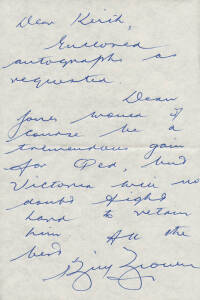 Dear Keith,
Enclosed
autographs as
requested.
Dean
Jones would of
course be a
tremendous gain
for Qld, but
Victoria will no
doubt fight
hard to retain
him All the
best
Bill Brown